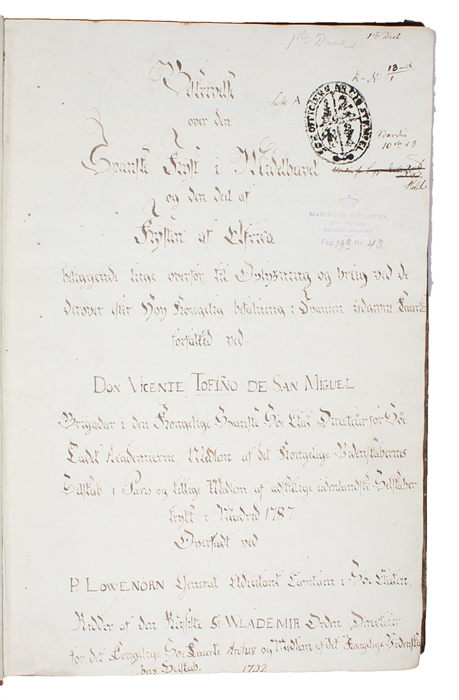 1ste Deel
Litt. A
Beskrivelse
over den
Spanske Kyst i Middelhavet
og den deel af
Kysten af Africa
beliggende lige overfor, til Oplysning og brug ved de
derover efter Høy Kongelig befalning i Spanien udgivne Kaarte
forfatted ved
DON VICENTE TOFIÑO DE SAN MIGUEL
Brigadier i den Kongelige Spanske Søe Etat Directeur for Søe
Cadet Academierne, Medlem af det Kongelige Videnskabernes
Selskab i Paris og tillige Medlem af adskillige udenlandske Selskaber
trykt i Madrid 1787
Oversadt ved
P. LÖWENÖRN General Adjutant Captain i Søe Etaten,
Ridder af den Russiske St. WLADEMIR Orden, Directeur
for det Kongelige Søe Kaarte Archiv og Medlem af det Kongelige Videnska-
bers Selskab. 1792
SØKORTICIENS ARCHIV STEMPEL
MARINENS BIBLIOTEK
Fac 198 Nr. 43